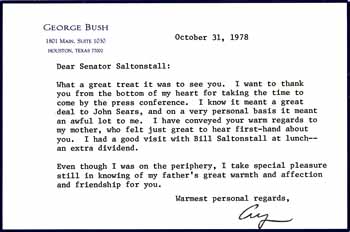 GEORGE BUSH
1801 MAIN, SUITE 1030
HOUSTON, TEXAS 77002
October 31, 1978
Dear Senator Saltonstall:
What a great treat it was to see you. I want to thank
you from the bottom of my heart for taking the time to
come by the press conference. I know it meant a great
deal to John Sears, and on a very personal basis it meant
an awful lot to me. I have conveyed your warm regards to
my mother, who felt just great to hear first-hand about
you. I had a good visit with Bill Saltonstall at lunch--
an extra dividend.
Even though I was on the periphery, I take special pleasure
still in knowing of my father's great warmth and affection
and friendship for you.
Warmest personal regards,